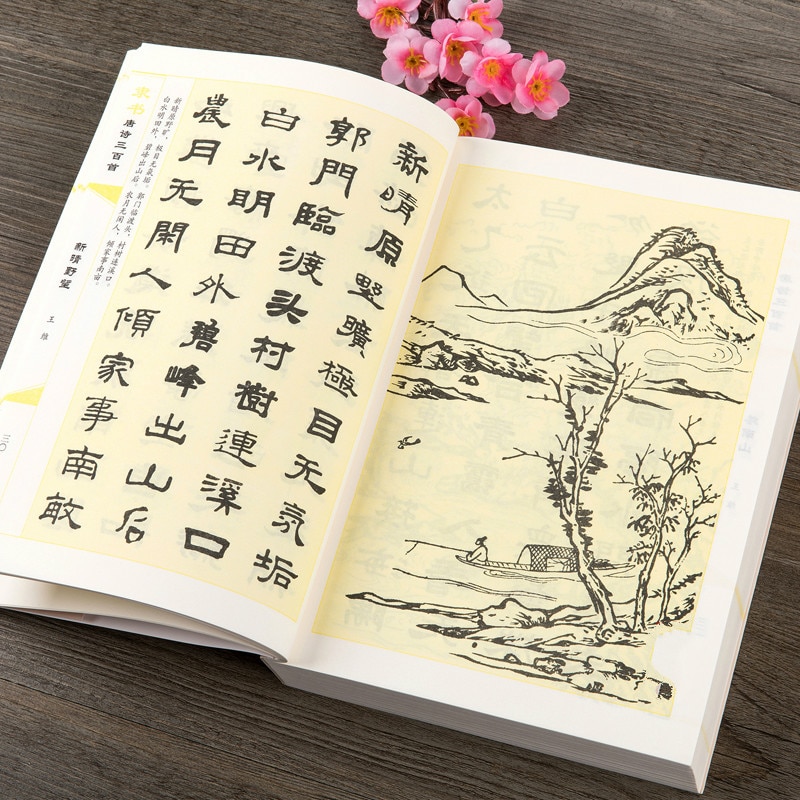 新晴原野曠極目无氛垢
郭門臨渡头村樹連溪口
白水明田外碧峰出山后
農月无閑人傾家事南畝
新晴原野旷，极目无氛垢。郭门临渡头，村树连溪口。
白水明田外，碧峰出山后。农月无闲人，倾家事南亩。
隶书
唐诗三百首
新晴野望
王维
三〇